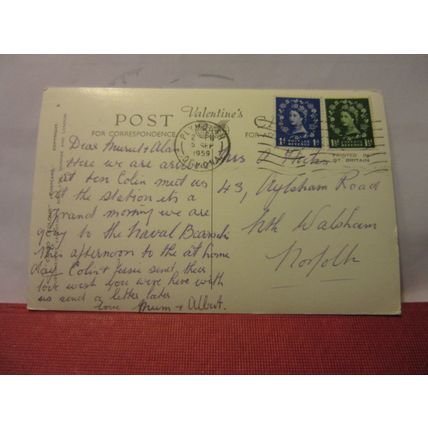 POST
Valentine's
FOR CORRESPONDENCE
PRINTED IN
GT. BRITAIN
PLYMOUTH
5 SEP
1959
DEVON
POSTAGE REVENUE
1D
1½D
Dear Muriel & Alan
Here we are arrived
at ten Colin met us
at the station its a
grand morning we are
going to the Naval Barracks
this afternoon to the at home
day Colin & June send their
love wish you were here with
us send a letter later
love Mum & Albert.
Mrs
43, Aylsham Road
Nth Walsham
Norfolk